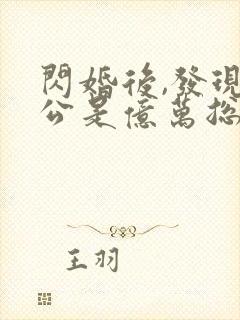 閃婚後,發現
公是億萬総
王羽